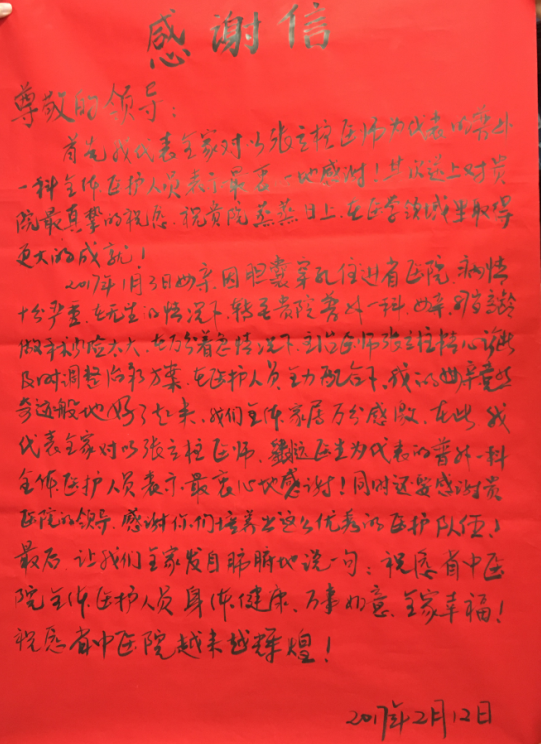 感谢信
尊敬的领导：
首先我代表全家对以张立柱医师为代表的普外
一科全体医护人员表示最衷心地感谢！其次送上对贵
院最真挚的祝愿，祝贵院蒸蒸日上，在医学领域里取得
更大的成就！
2017年1月3日母亲，因胆囊穿孔住进省医院，病情
十分严重，在无望的情况下，转至贵院普外一科，母亲，高龄
做手术风险太大，在万分着急情况下，主治医师张立柱精心诊断
及时调整治疗方案，在医护人员全力配合下，我的母亲竟然
奇迹般地好了起来，我们全体家属万分感激，在此我
代表全家对以张立柱医师，医生为代表的普外一科
全体医护人员表示最衷心地感谢！同时还要感谢贵
医院的领导，感谢你们培养出这么优秀的医护队伍！
最后，让我们全家发自肺腑地说一句：祝愿省中医
院全体医护人员身体健康、万事如意、全家幸福！
祝愿省中医院越来越辉煌！
2017年2月12日